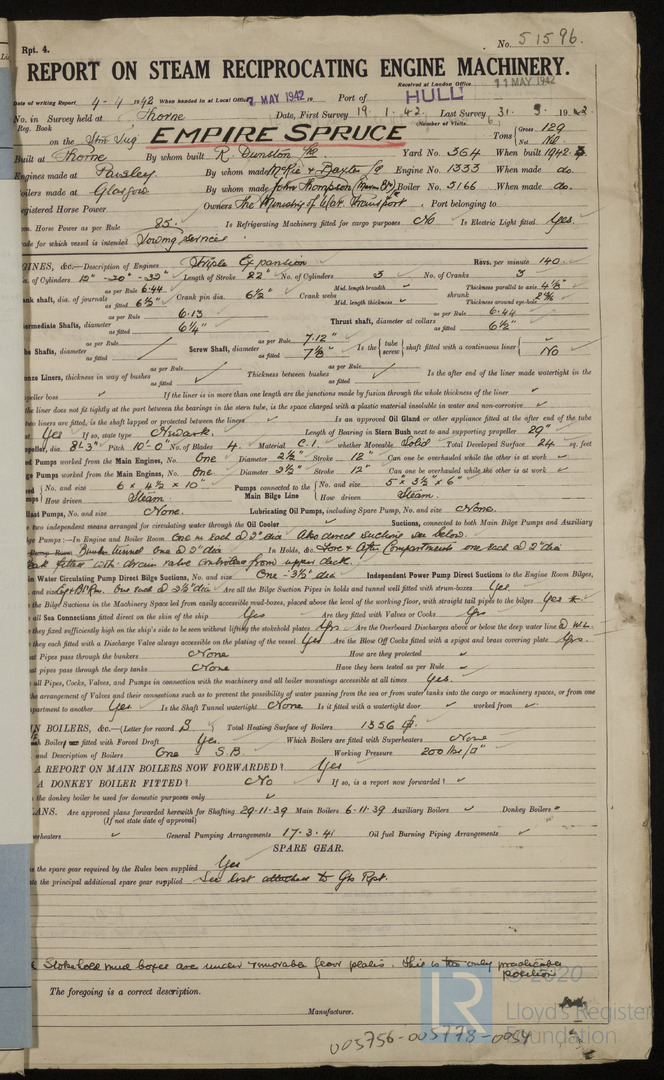 Rpt. 4.
No. 51596.
REPORT ON STEAM RECIPROCATING ENGINE MACHINERY.
Received at London Office 11 MAY 1942
Date of writing Report 4-4-1942 When handed in at Local Office 7 MAY 1942 19 Port of HULL
No. in Survey held at Thorne Date, First Survey 19.1.42. Last Survey 31.3.1942
Reg. Book (Number of Visits 6)
on the Stm Tug EMPIRE SPRUCE Tons { Gross 129 Net Nil
Built at Thorne By whom built R. Dunston Ltd Yard No. 364 When built 1942.
Engines made at Paisley By whom made McKie & Baxter Ld Engine No. 1333 When made do.
Boilers made at Glasgow By whom made John Thompson Boiler No. 5166 When made do.
Registered Horse Power Owners The Ministry of War Transport Port belonging to
Horse Power as per Rule 85. Is Refrigerating Machinery fitted for cargo purposes No Is Electric Light fitted Yes.
for which vessel is intended Towing Services
GINES, &c.—Description of Engines Triple Expansion Revs. per minute 140
of Cylinders 12"-20"-32" Length of Stroke 22" No. of Cylinders 3 No. of Cranks 3
as per Rule 6.44 Mid. length breadth Thickness parallel to axis 4 1/2"
ank shaft, dia. of journals as fitted 6 1/2" Crank pin dia. 6 1/2" Crank webs Mid. length thickness shrunk Thickness around eye-hole
as per Rule 6.13 as per Rule 6.44
ermediate Shafts, diameter as fitted 6 1/4" Thrust shaft, diameter at collars as fitted 6 1/2"
as per Rule as per Rule 7.12"
be Shafts, diameter as fitted Screw Shaft, diameter as fitted 7 1/8" Is the { tube screw } shaft fitted with a continuous liner { No
as per Rule as per Rule
onze Liners, thickness in way of bushes as fitted Thickness between bushes as fitted Is the after end of the liner made watertight in the
peller boss If the liner is in more than one length are the junctions made by fusion through the whole length of the liner
the liner does not fit tightly at the part between the bearings in the stern tube, is the space charged with a plastic material insoluble in water and non-corrosive
two liners are fitted, is the shaft lapped or protected between the liners Is an approved Oil Gland or other appliance fitted at the after end of the tube
Yes If so, state type Newark. Length of Bearing in Stern Bush next to and supporting propeller 29"
peller, dia 8'-3" Pitch 10'-0" No. of Blades 4. Material C.I. whether Moveable Solid Total Developed Surface 24 sq. feet
ed Pumps worked from the Main Engines, No. One Diameter 2 1/2" Stroke 12" Can one be overhauled while the other is at work
ge Pumps worked from the Main Engines, No. One Diameter 3 1/2" Stroke 12" Can one be overhauled while the other is at work
No. and size 6 x 4 1/2 x 10" Pumps connected to the No. and size 5" x 3 1/2" x 6"
How driven Steam. Main Bilge Line How driven Steam.
llast Pumps, No. and size None. Lubricating Oil Pumps, including Spare Pump, No. and size None.
two independent means arranged for circulating water through the Oil Cooler Suctions, connected to both Main Bilge Pumps and Auxiliary
ge Pumps :—In Engine and Boiler Room One in each @ 2" dia Also direct suctions see below.
Bunker tunnel One @ 2" dia In Holds, &c. Fore & After Compartments one each @ 2" dia
Peak fitted with drain valve controlled from upper deck.
in Water Circulating Pump Direct Bilge Suctions, No. and size One - 3 1/2" dia Independent Power Pump Direct Suctions to the Engine Room Bilges,
and size One each @ 2 1/2" dia Are all the Bilge Suction Pipes in holds and tunnel well fitted with strum-boxes Yes
the Bilge Suctions in the Machinery Space led from easily accessible mud-boxes, placed above the level of the working floor, with straight tail pipes to the bilges Yes *
all Sea Connections fitted direct on the skin of the ship Yes Are they fitted with Valves or Cocks Yes
they fixed sufficiently high on the ship's side to be seen without lifting the stokehold plates Yes Are the Overboard Discharges above or below the deep water line @ W.L.
they each fitted with a Discharge Valve always accessible on the plating of the vessel Yes Are the Blow Off Cocks fitted with a spigot and brass covering plate Yes.
at Pipes pass through the bunkers None How are they protected
at pipes pass through the deep tanks None Have they been tested as per Rule
all Pipes, Cocks, Valves, and Pumps in connection with the machinery and all boiler mountings accessible at all times Yes.
the arrangement of Valves and their connections such as to prevent the possibility of water passing from the sea or from water tanks into the cargo or machinery spaces, or from one
partment to another Yes Is the Shaft Tunnel watertight None Is it fitted with a watertight door worked from
IN BOILERS, &c.—(Letter for record S) Total Heating Surface of Boilers 1356
Boiler fitted with Forced Draft Yes. Which Boilers are fitted with Superheaters None
and Description of Boilers One S.B. Working Pressure 200 lbs/□"
A REPORT ON MAIN BOILERS NOW FORWARDED? Yes
A DONKEY BOILER FITTED? No If so, is a report now forwarded?
the donkey boiler be used for domestic purposes only
LANS. Are approved plans forwarded herewith for Shafting 29-11-39 Main Boilers 6-11-39 Auxiliary Boilers Donkey Boilers
(If not state date of approval)
perheaters General Pumping Arrangements 17-3-41 Oil fuel Burning Piping Arrangements
SPARE GEAR.
the spare gear required by the Rules been supplied Yes
the principal additional spare gear supplied See list attached to Gls Rpt.
* Stokehold mud boxes are under removable floor plates. This is the only practicable
position
The foregoing is a correct description.
Manufacturer.
© 2020
LR
Lloyd's Register
Foundation
005756-005778-0054